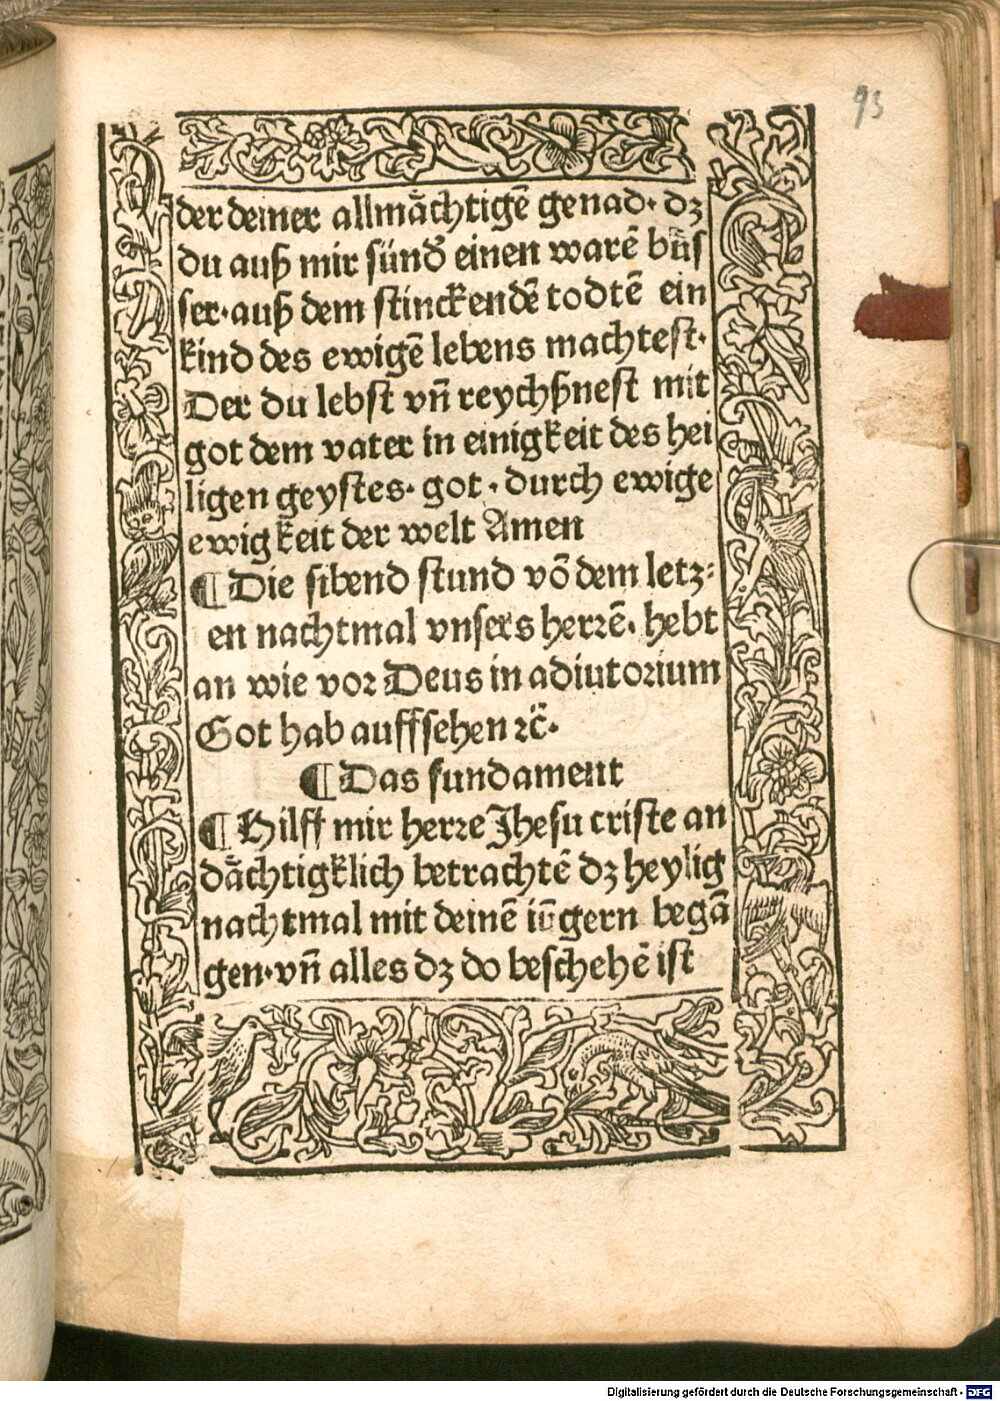 93
der deiner allmaͤchtigē genad· dz
du auß mir sünd̕ einen warē buͤs
ser·auß dem stinckendē todtē ein
kind des ewigē lebens machtest·
Der du lebst vn̄ reychßnest mit
got dem vater in einigkeit des hei
ligen geystes· got · durch ewige
ewigkeit der welt Amen
¶Die sibend stund vō dem letz⸗
en nachtmal vnsers herꝛē. hebt
an wie voꝛ Deus in adiutoꝛium
Got hab auffsehen ꝛc̈·
¶Das fundament
¶Hilff mir herꝛe Jhesu criste an
daͤchtigklich betrachtē dz heylig
nachtmal mit deinē iūgern begā
gen·vn̄ alles dz do beschehē ist
Digitalisierung gefördert durch die Deutsche Forschungsgemeinschaft - DFG